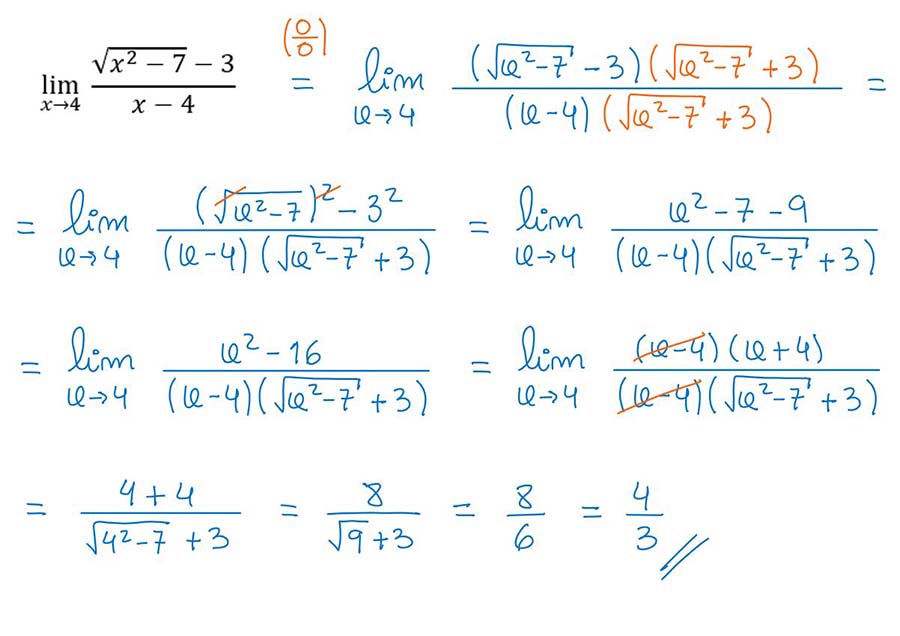 lim x→4 (√(x² − 7) − 3)/(x − 4) (0/0) = lim x→4 ((√(x²−7) − 3)(√(x²−7) + 3))/((x−4)(√(x²−7) + 3)) =
= lim x→4 ((√(x²−7))² − 3²)/((x−4)(√(x²−7) + 3)) = lim x→4 (x² − 7 − 9)/((x−4)(√(x²−7) + 3))
= lim x→4 (x² − 16)/((x−4)(√(x²−7) + 3)) = lim x→4 ((x−4)(x+4))/((x−4)(√(x²−7) + 3))
= (4+4)/(√(4²−7) + 3) = 8/(√9 + 3) = 8/6 = 4/3 //